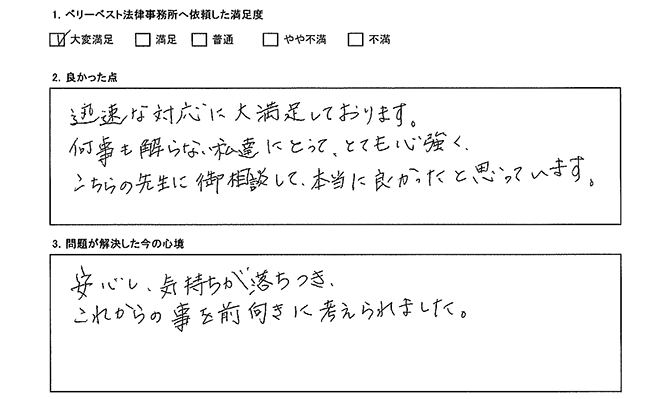 1. ベリーベスト法律事務所へ依頼した満足度
大変満足 満足 普通 やや不満 不満
2. 良かった点
迅速な対応に大満足しております。
何事も解らない私達にとって、とても心強く、
こちらの先生に御相談して、本当に良かったと思っています。
3. 問題が解決した今の心境
安心し、気持ちが落ちつき、
これからの事を前向きに考えられました。